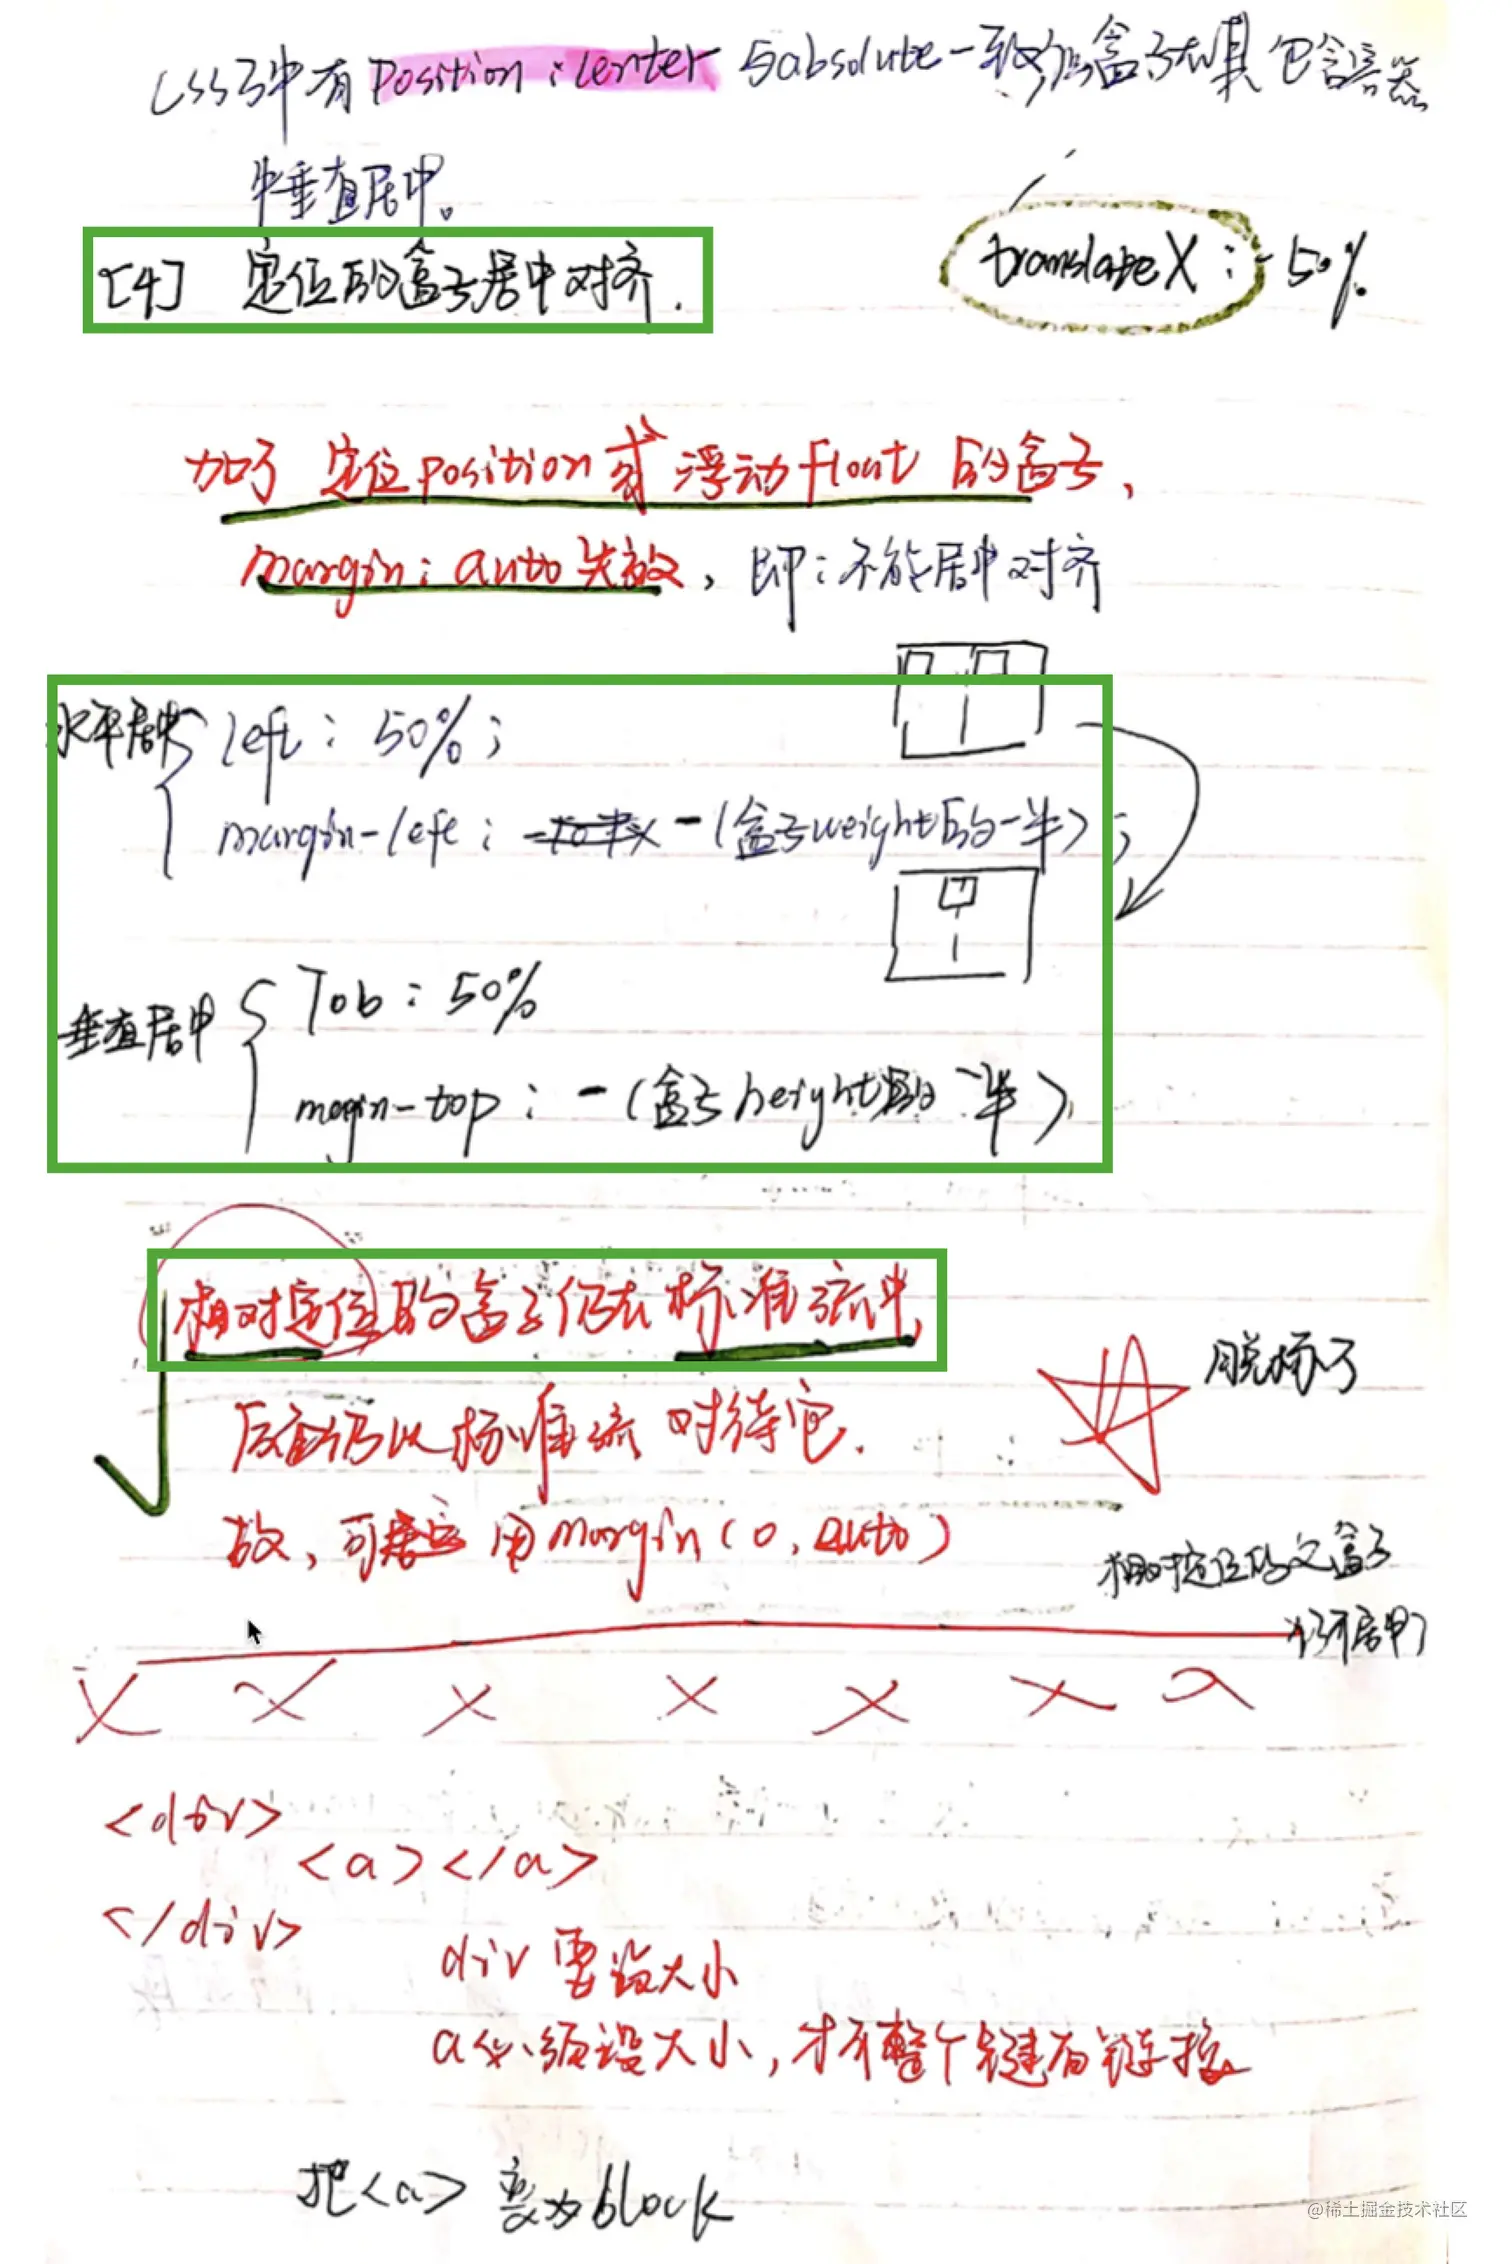 CSS3中有position:center 与absolute一致,但盒子在其包含容器
中垂直居中。
[4] 定位的盒子居中对齐.
translateX:-50%
加了 定位position或浮动float的盒子,
margin:auto失效, 即:不能居中对齐
水平居中 left:50%;
margin-left: -(盒子weight的一半);
垂直居中 Tob:50%
mogin-top: -(盒子height的一半)
相对定位的盒子仍在标准流中,
脱标了
后面仍以标准流 对待它.
故,可 用margin(0,auto)
相对定位的父盒子
仍可居中
<div>
<a></a>
</div>
div 要设大小
a必须设大小,才有整个键有链接
把<a> 变为block
@稀土掘金技术社区